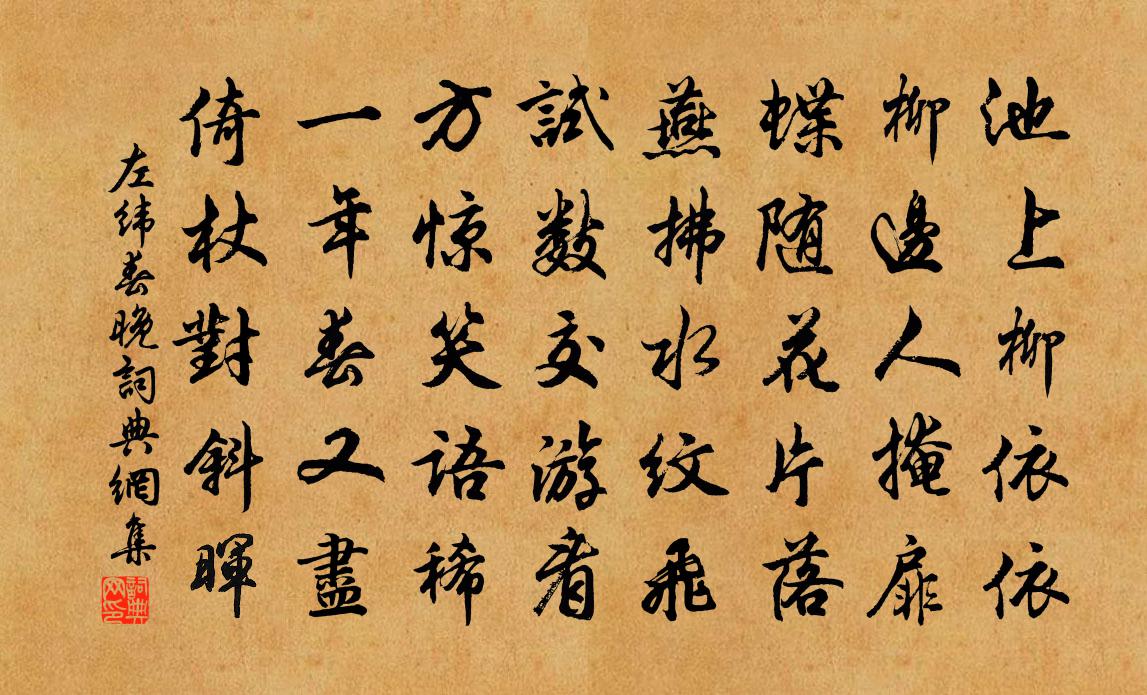 池上柳依依
柳邊人掩扉
蝶随花片落
燕拂水紋飛
試數交游看
方惊笑語稀
一年春又盡
倚杖對斜暉
左緯春晚詞典網集
詞典网印